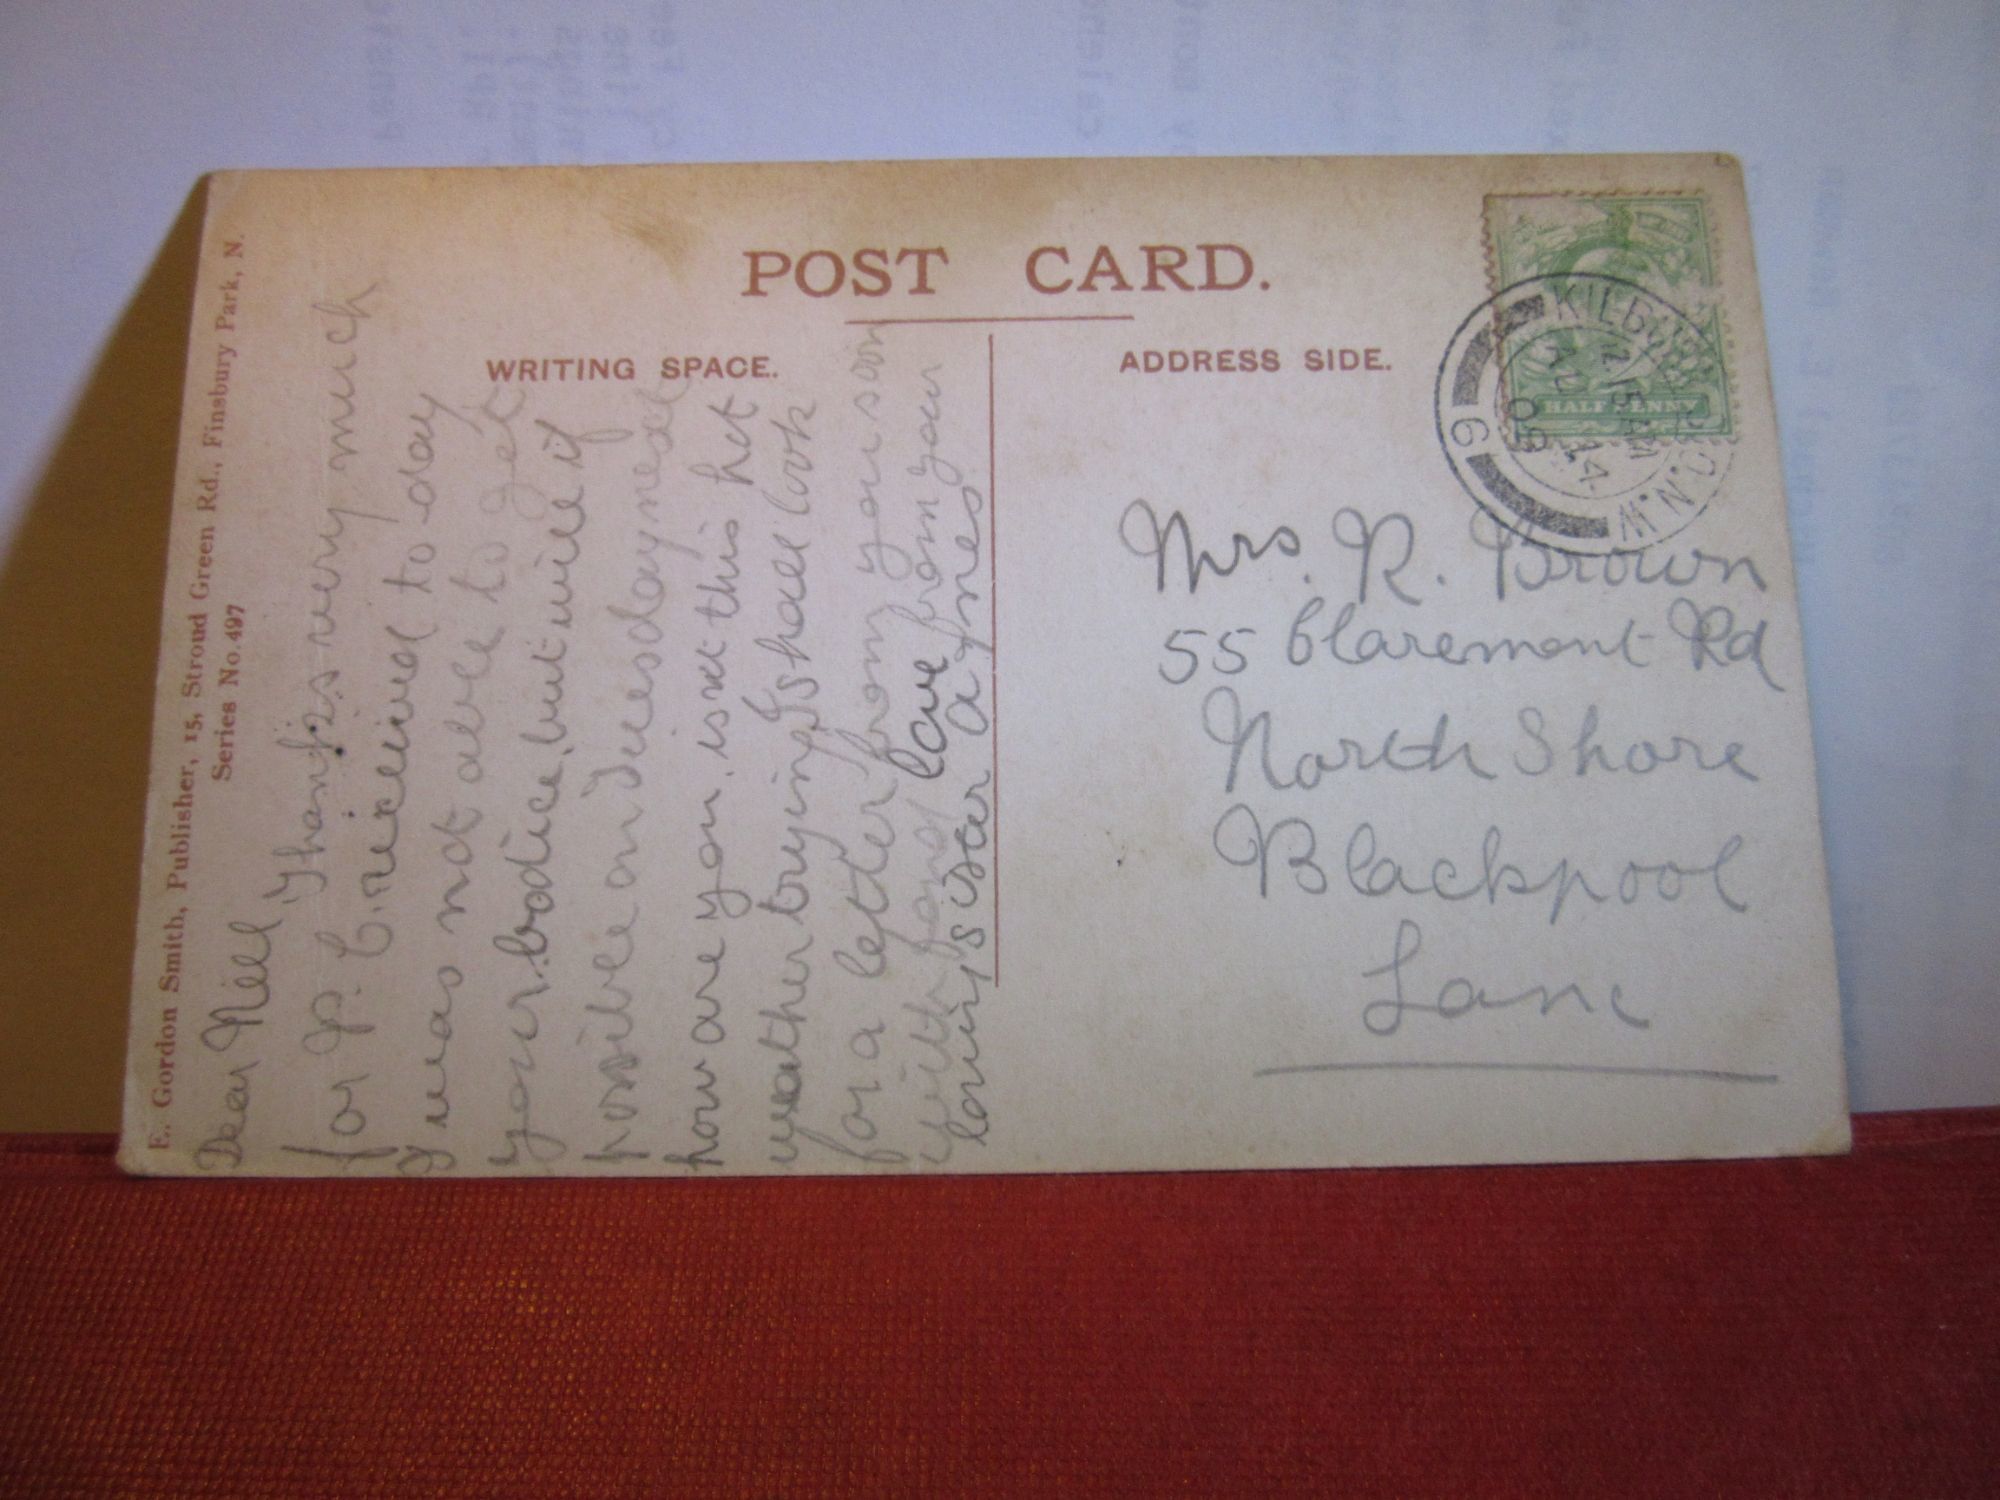 POST CARD.
WRITING SPACE.
ADDRESS SIDE.
E. Gordon Smith, Publisher, 15, Stroud Green Rd., Finsbury Park, N.
Series No. 497
Dear Nell, Thanks very much
for P. C. received to day
I was not able to get
your bodice, but will if
possible on Tuesday next
how are you, is not this het
weather trying I shall look
for a letter from you soon
with fond love from your
loving sister Agnes
HALFPENNY
KILBURN B.O. N.W.
12.15 AM
AU 14
09
6
Mrs. R. Brown
55 Claremont Rd
North Shore
Blackpool
Lanc